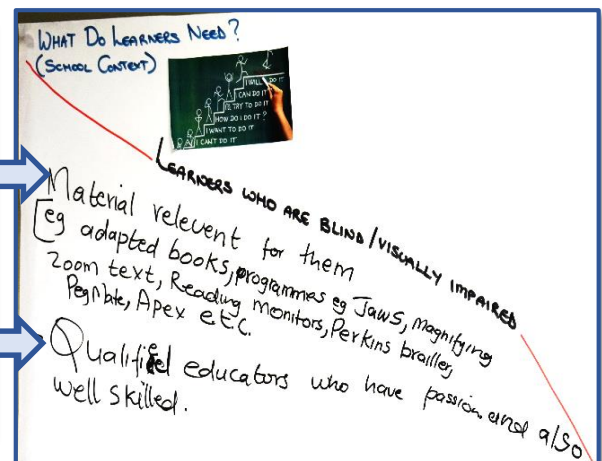 WHAT DO LEARNERS NEED?
(SCHOOL CONTEXT)
I WILL DO IT
I CAN DO IT
I'LL TRY TO DO IT
HOW DO I DO IT?
I WANT TO DO IT
I CAN'T DO IT
LEARNERS WHO ARE BLIND/VISUALLY IMPAIRED
Material relevent for them
[eg adapted books, programmes eg Jaws, Magnifying
Zoom text, Reading monitors, Perkins brailler,
PegMate, Apex etc.
Qualified educators who have passion and also
well skilled.